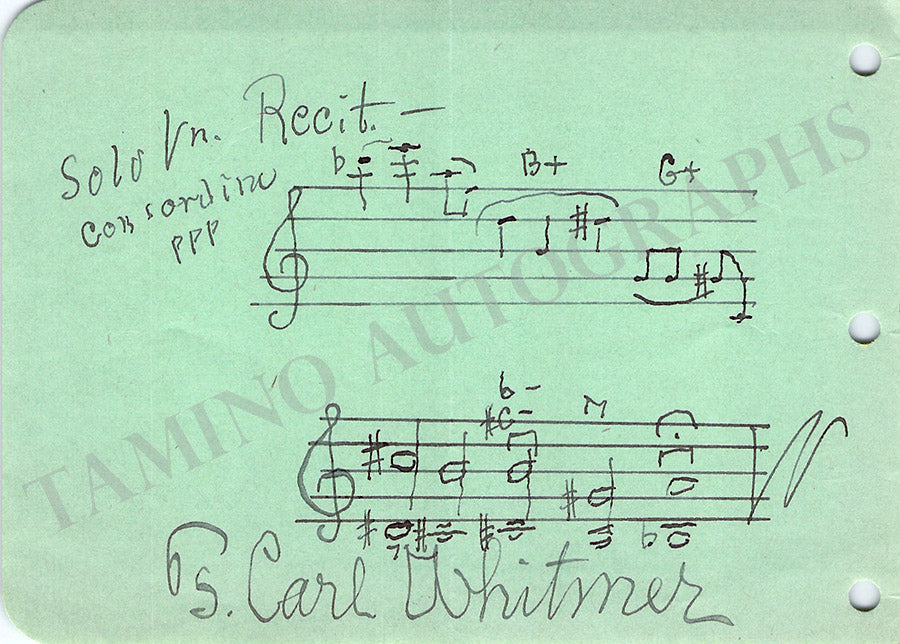 Solo Vn. Recit. —
con sordino
ppp
B+ G+
TAMINO AUTOGRAPHS
T. Carl Whitmer